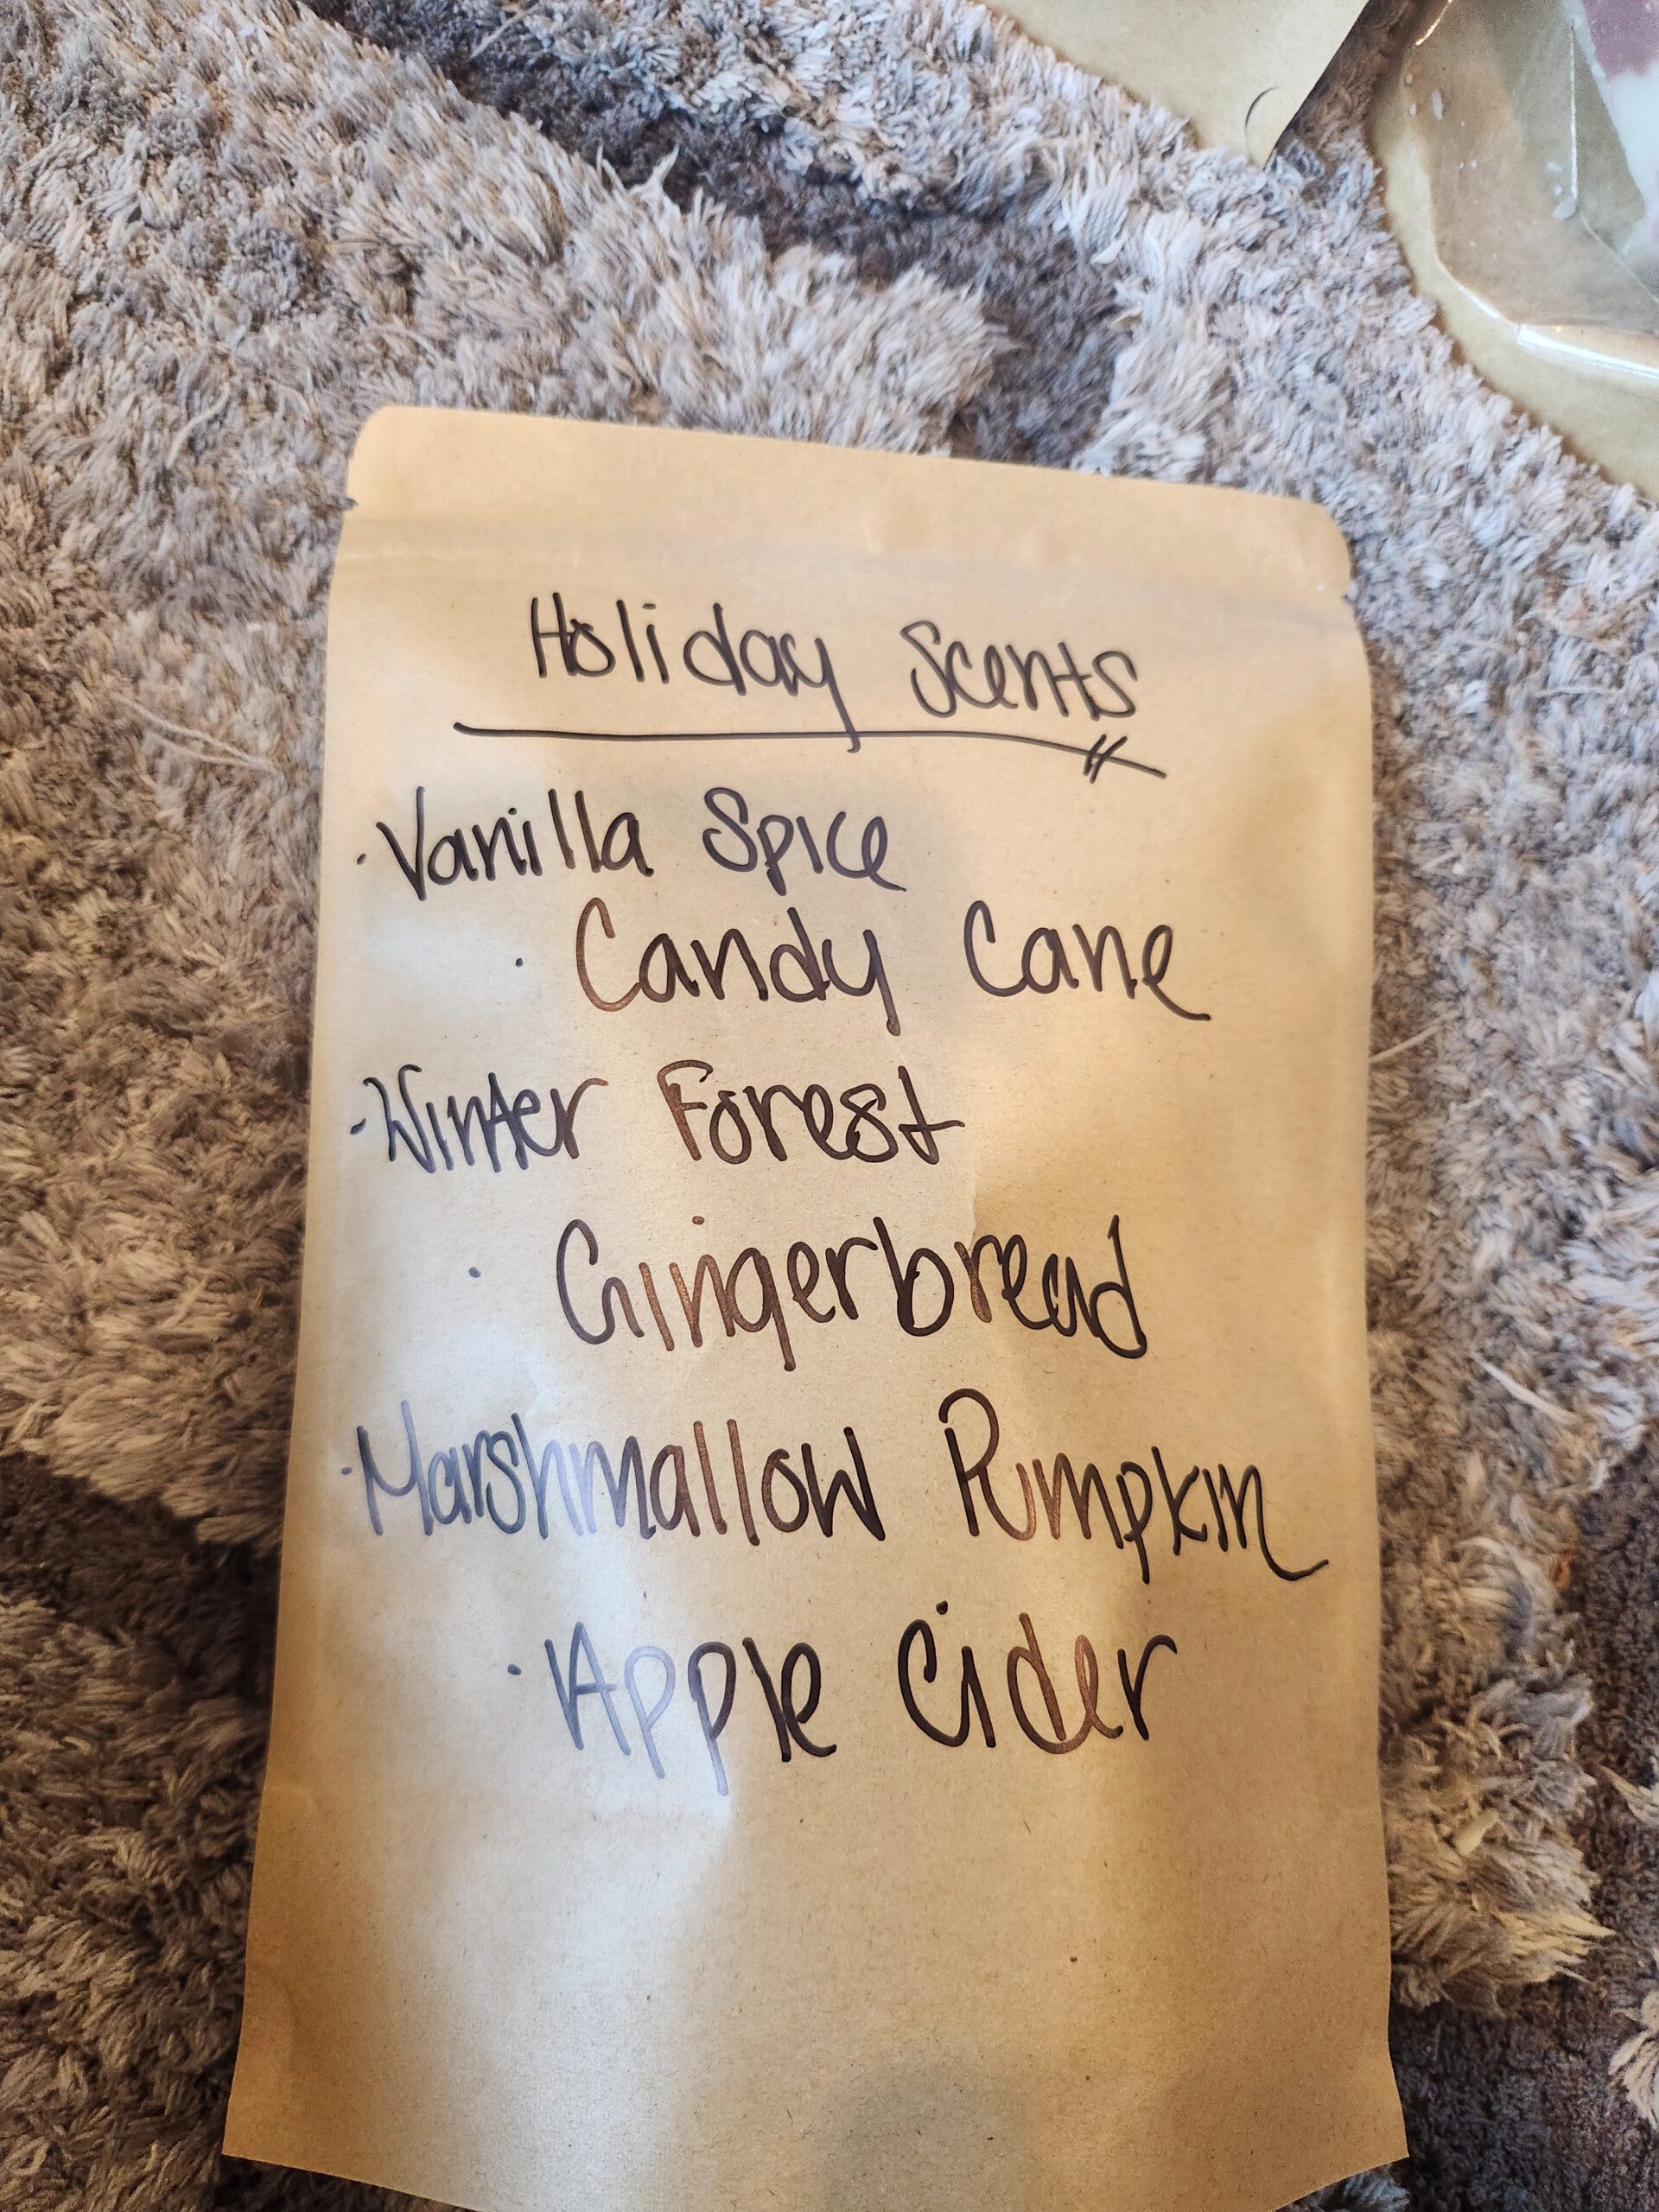 Holiday Scents
· Vanilla Spice
· Candy Cane
· Winter Forest
· Gingerbread
· Marshmallow Pumpkin
· Apple Cider